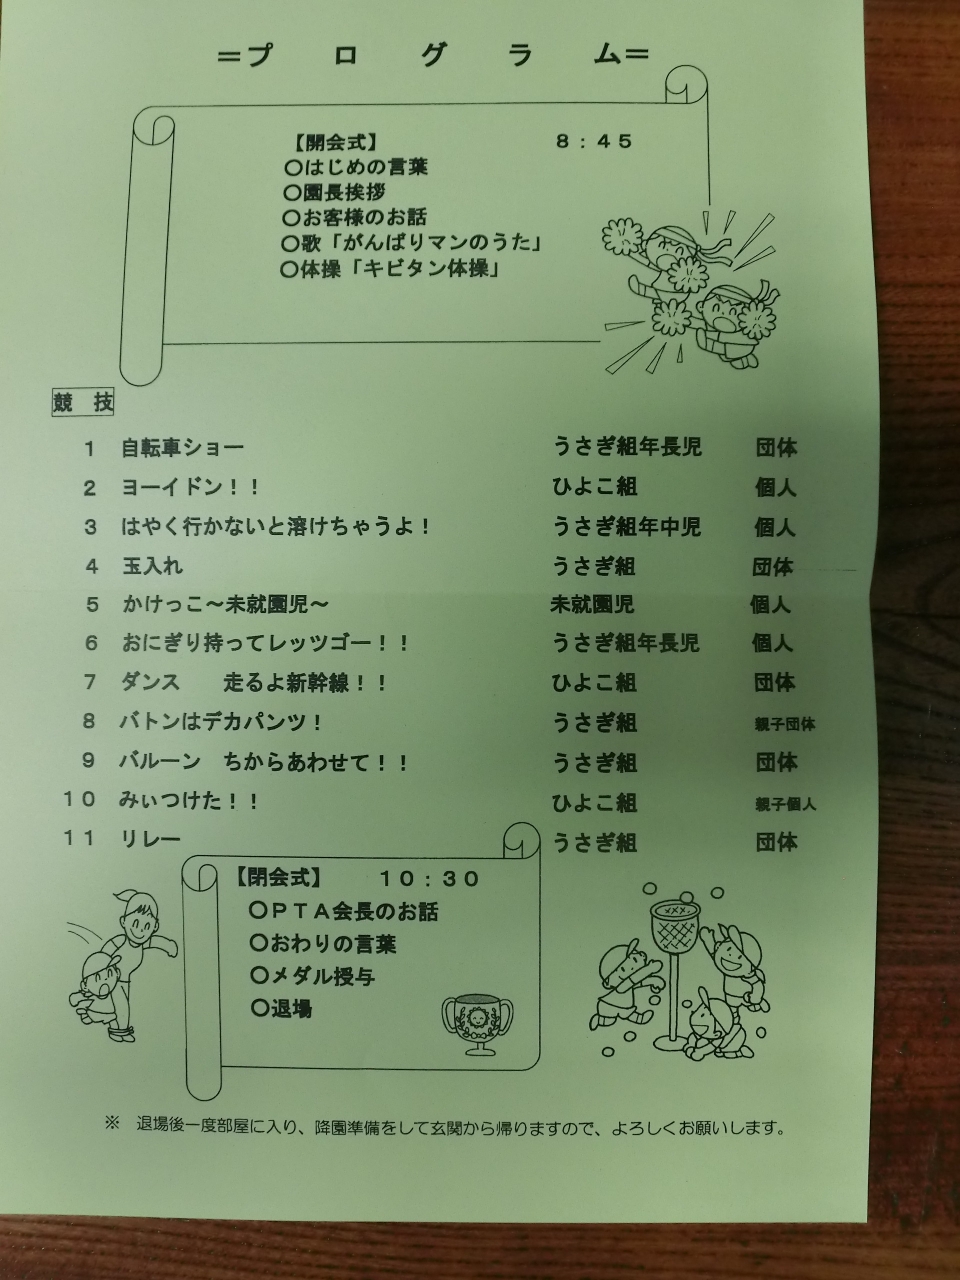 ＝プ　ロ　グ　ラ　ム＝
【開会式】　８：４５
〇はじめの言葉
〇園長挨拶
〇お客様のお話
〇歌「がんばりマンのうた」
〇体操「キビタン体操」
競　技
１　自転車ショー　うさぎ組年長児　団体
２　ヨーイドン！！　ひよこ組　個人
３　はやく行かないと溶けちゃうよ！　うさぎ組年中児　個人
４　玉入れ　うさぎ組　団体
５　かけっこ～未就園児～　未就園児　個人
６　おにぎり持ってレッツゴー！！　うさぎ組年長児　個人
７　ダンス　走るよ新幹線！！　ひよこ組　団体
８　バトンはデカパンツ！　うさぎ組　親子団体
９　バルーン　ちからあわせて！！　うさぎ組　団体
１０　みぃつけた！！　ひよこ組　親子個人
１１　リレー　うさぎ組　団体
【閉会式】　１０：３０
〇ＰＴＡ会長のお話
〇おわりの言葉
〇メダル授与
〇退場
※　退場後一度部屋に入り、降園準備をして玄関から帰りますので、よろしくお願いします。